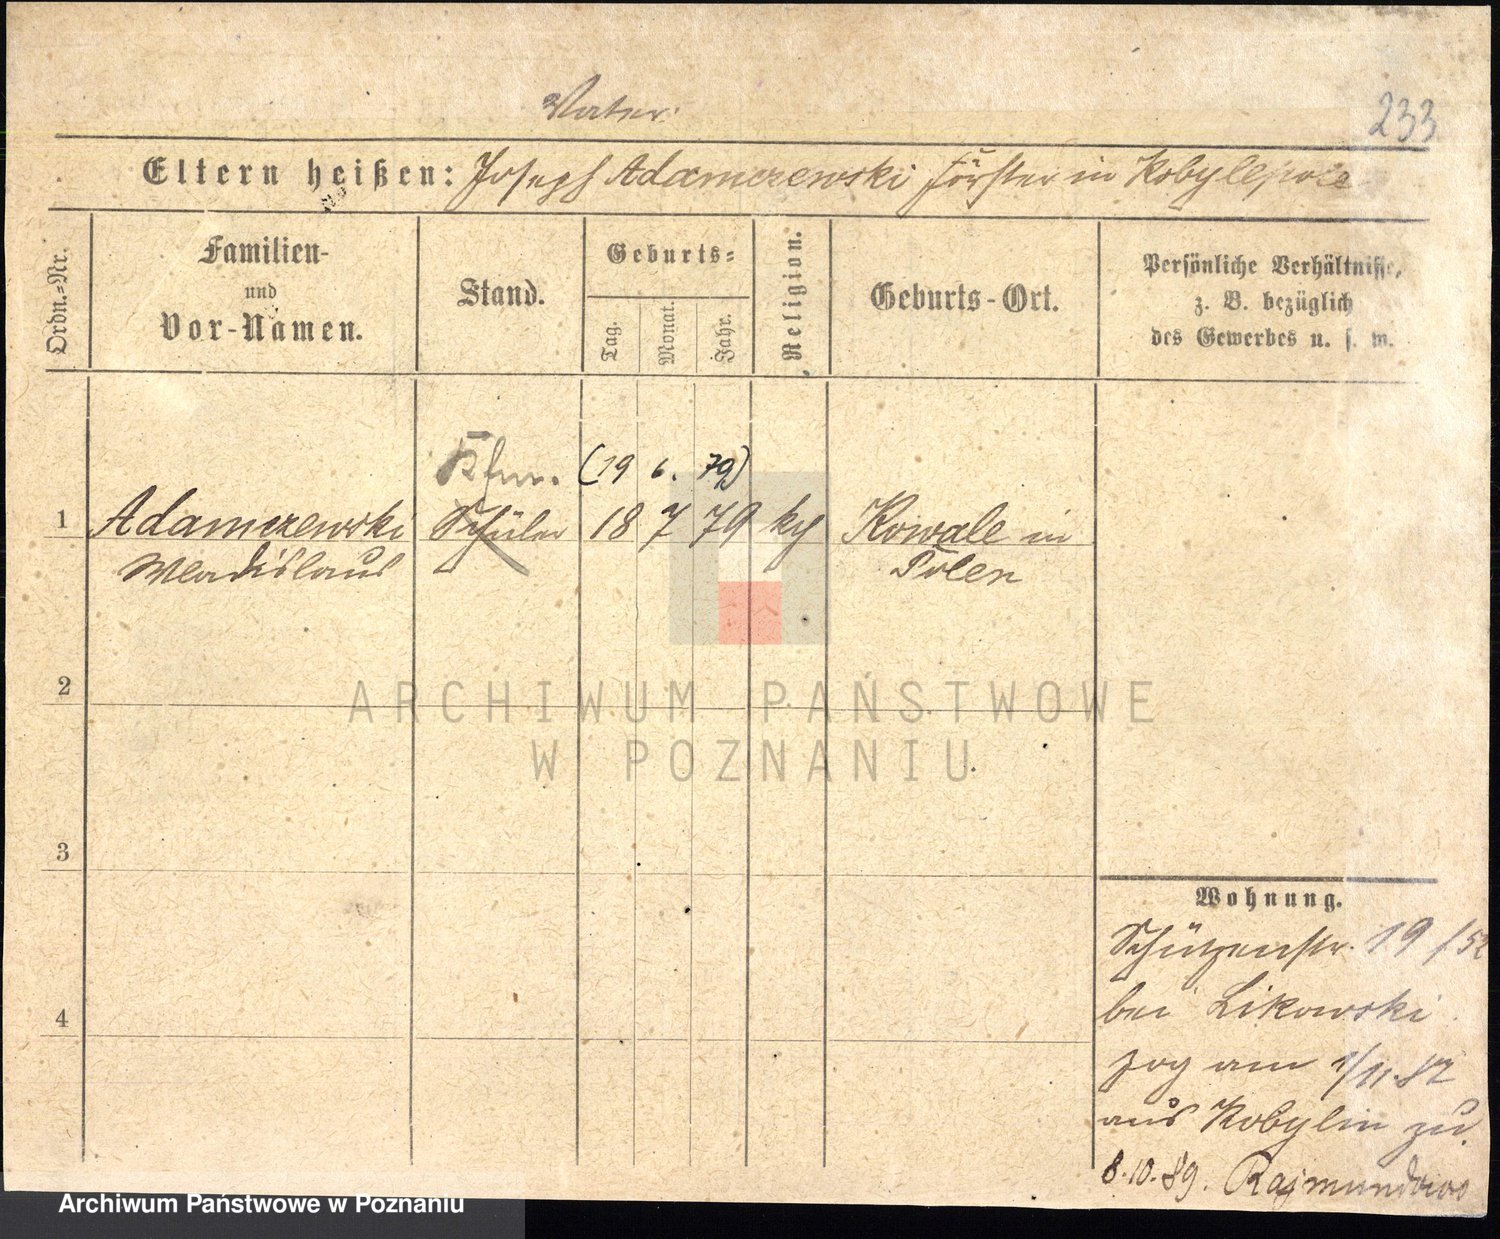 Vater:
233
Eltern heißen: Joseph Adamczewski Förster in Kobylepole
Ordn.-Nr.
Familien-
und
Vor-Namen.
Stand.
Geburts-
Tag.
Monat.
Jahr.
Religion.
Geburts-Ort.
Persönliche Verhältnisse,
z. B. bezüglich
des Gewerbes u. s. w.
Kfm. (19 6. 79)
1 Adamczewski Schüler 18 7 79 kth Kowale in
Wladislaus Polen
2
ARCHIWUM PAŃSTWOWE
W POZNANIU
3
Wohnung.
Schützenstr. 19/52
bei Likowski
4
zog am 1/11.87
aus Kobylin zu.
8.10.89. Rajmundowo
Archiwum Państwowe w Poznaniu